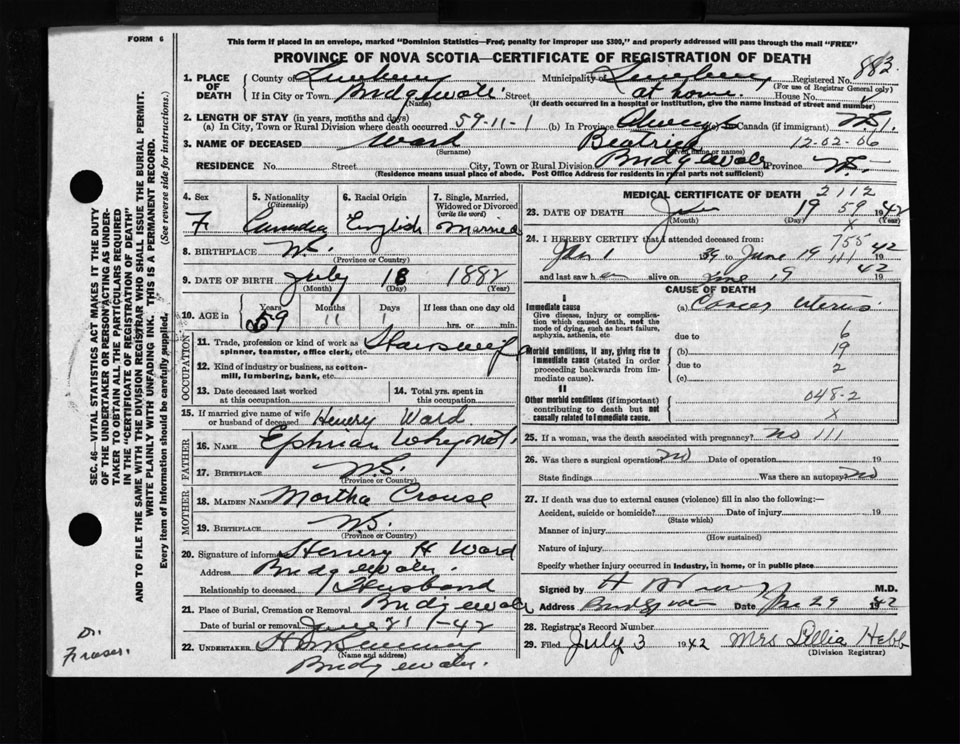 FORM 6
This form if placed in an envelope, marked "Dominion Statistics—Free, penalty for improper use $300," and properly addressed will pass through the mail "FREE"
PROVINCE OF NOVA SCOTIA—CERTIFICATE OF REGISTRATION OF DEATH
1. PLACE OF DEATH County of Lunenburg Municipality of Lunenburg Registered No. 883
(For use of Registrar General only)
If in City or Town Bridgewater Street at home. House No.
(Name) (If death occurred in a hospital or institution, give the name instead of street and number)
2. LENGTH OF STAY (in years, months and days)
(a) In City, Town or Rural Division where death occurred 59-11-1 (b) In Province Always Canada (if immigrant) N.S.
3. NAME OF DECEASED Ward Beatrice 12-02-06
(Surname) (Given name or names)
RESIDENCE No. Street City, Town or Rural Division Bridgewater Province N.S.
(Residence means usual place of abode. Post Office Address for residents in rural parts not sufficient)
4. Sex F
5. Nationality (Citizenship) Canadian
6. Racial Origin English
7. Single, Married, Widowed or Divorced (write the word) Married
8. BIRTHPLACE N.S.
(Province or Country)
9. DATE OF BIRTH July 18 1882
(Month) (Day) (Year)
10. AGE in Years 59 Months 11 Days 1 If less than one day old
hrs. or min.
OCCUPATION
11. Trade, profession or kind of work as spinner, teamster, office clerk, etc. Housewife
12. Kind of industry or business, as cotton-mill, lumbering, bank, etc.
13. Date deceased last worked at this occupation
14. Total yrs. spent in this occupation
15. If married give name of wife or husband of deceased Henery Ward
FATHER
16. NAME Ephriam Whynot
17. BIRTHPLACE N.S.
(Province or Country)
MOTHER
18. MAIDEN NAME Martha Crouse
19. BIRTHPLACE N.S.
(Province or Country)
20. Signature of informant Henery H Ward
Address Bridgewater.
Relationship to deceased Husband
21. Place of Burial, Cremation or Removal Bridgewater
Date of burial or removal June 21-42
22. UNDERTAKER
(Name and address)
Bridgewater.
MEDICAL CERTIFICATE OF DEATH
2112
23. DATE OF DEATH June 19 59 1942
(Month) (Day) (Year)
X
24. I HEREBY CERTIFY that I attended deceased from: 755
Jan 1 1939 to June 19 1942
111
and last saw h er alive on June 19 1942
CAUSE OF DEATH
I
Immediate cause (a) Cancer Uterus
Give disease, injury or complication which caused death, not the mode of dying, such as heart failure, asphyxia, asthenia, etc
due to 6
Morbid conditions, if any, giving rise to immediate cause (stated in order proceeding backwards from immediate cause). (b) 19
due to 2
(c)
II
Other morbid conditions (if important) contributing to death but not causally related to immediate cause. 048-2
X
25. If a woman, was the death associated with pregnancy? no 111
26. Was there a surgical operation No Date of operation 19
State findings Was there an autopsy No
27. If death was due to external causes (violence) fill in also the following:—
Accident, suicide or homicide? Date of injury 19
(State which)
Manner of injury
(How sustained)
Nature of injury
Specify whether injury occurred in industry, in home, or in public place
Signed by M.D.
Address Bridgewater Date June 29 1942
28. Registrar's Record Number
29. Filed July 3 1942 Mrs Lillia Hebb
(Division Registrar)
SEC. 46—VITAL STATISTICS ACT MAKES IT THE DUTY
OF THE UNDERTAKER OR PERSON ACTING AS UNDER-
TAKER TO OBTAIN ALL THE PARTICULARS REQUIRED
IN THE "CERTIFICATE OF REGISTRATION OF DEATH"
AND TO FILE THE SAME WITH THE DIVISION REGISTRAR WHO SHALL ISSUE THE BURIAL PERMIT.
WRITE PLAINLY WITH UNFADING INK. THIS IS A PERMANENT RECORD.
Every item of Information should be carefully supplied. (See reverse side for instructions.)
Dr.
Fraser.